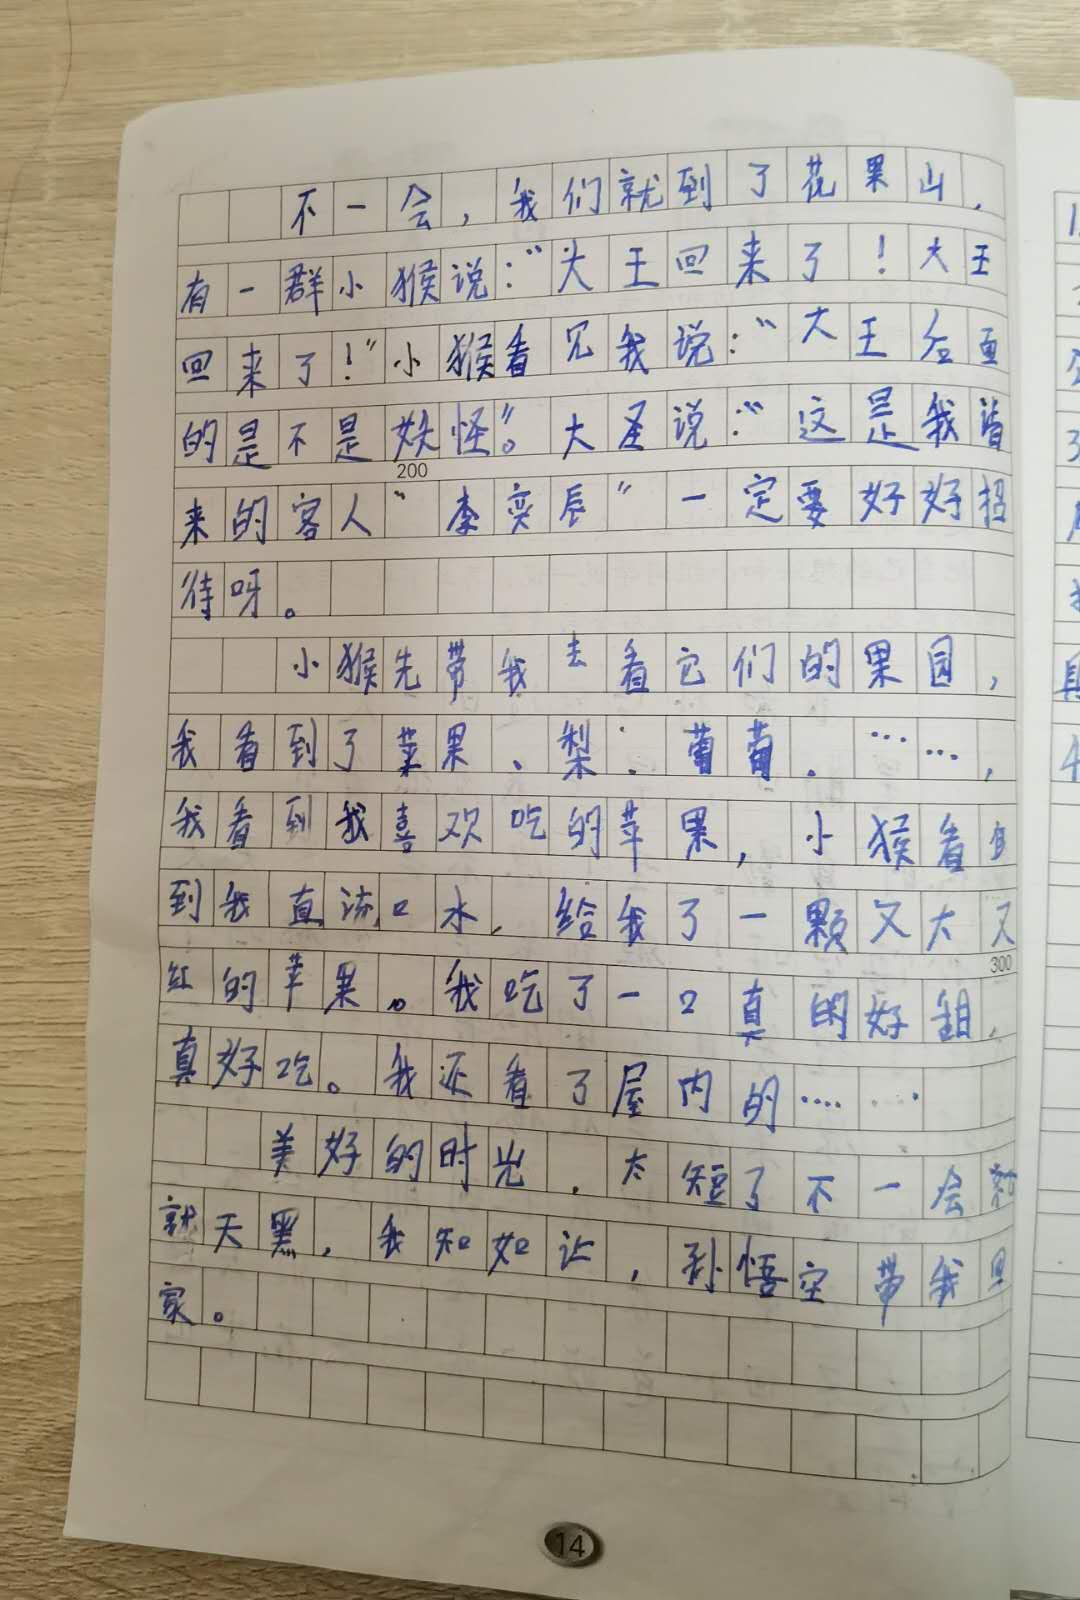 不一会，我们就到了花果山，
有一群小猴说：“大王回来了！大王
回来了！”小猴看见我说：“大王后面
的是不是妖怪”。大圣说：“这是我请
200
来的客人“李奕辰”一定要好好招
待呀。
小猴先带我去看它们的果园，
我看到了苹果、梨、葡萄、……，
我看到我喜欢吃的苹果，小猴看
到我直流口水，给我了一颗又大又
300
红的苹果。我吃了一口真的好甜，
真好吃。我还看了屋内的……
美好的时光，太短了不一会
就天黑，我知如让，孙悟空带我回
家。
14